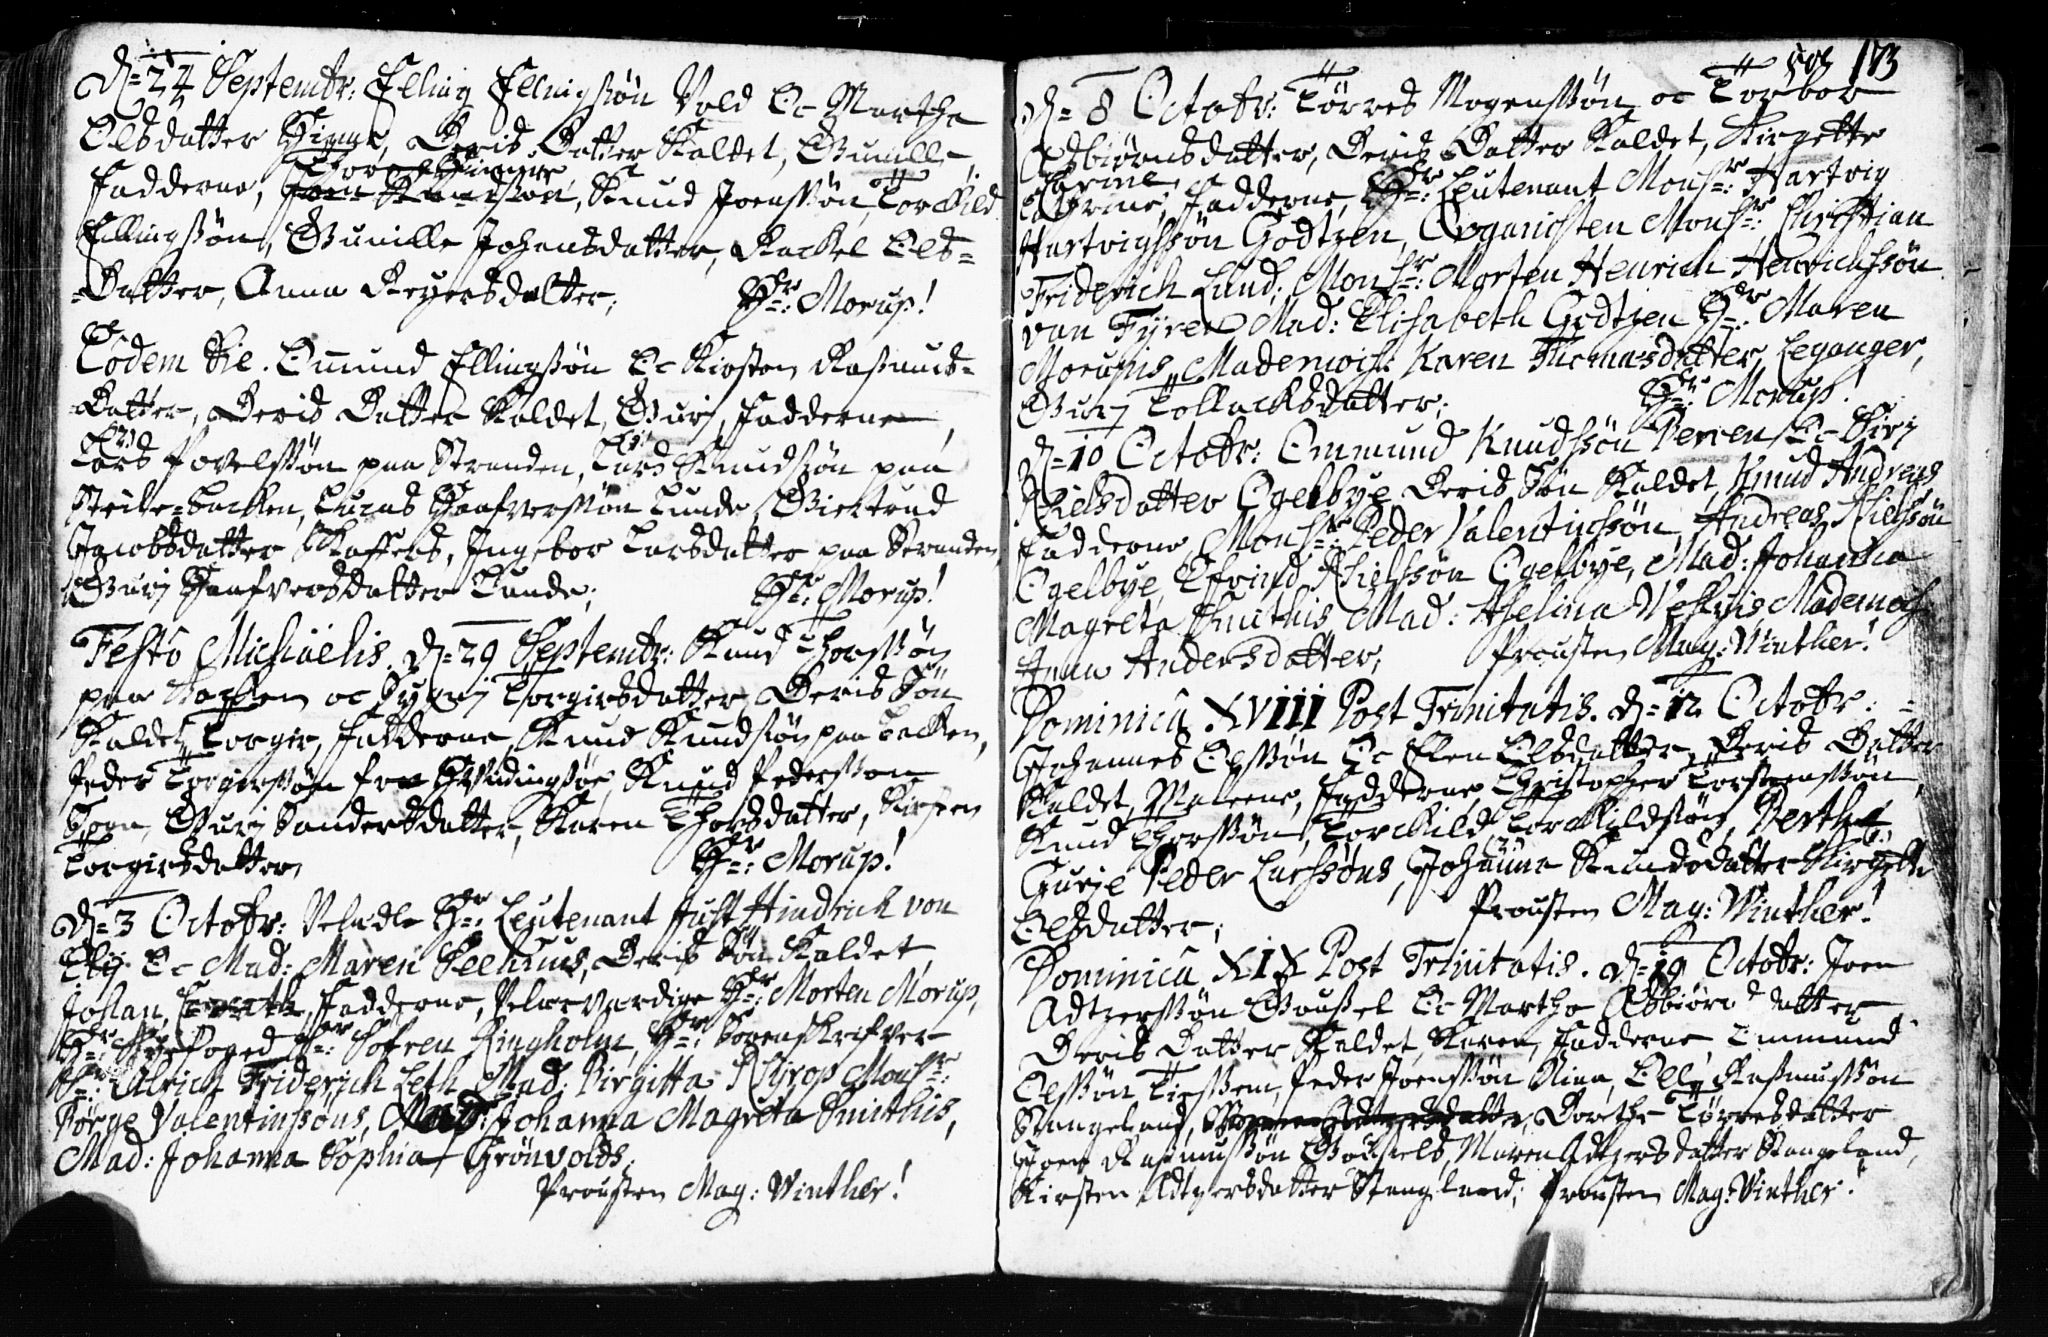 D= 24 Septembr: Elling Ellingssøn Vold Oc Martha
Olsdatter Deris Datter Kaldet, Gunille,
Fadderne, Knud Joenssøn, Torckild
Ellingssøn, Gunille Johansdatter, Rackel Ols=
=Datter, Anna Reyersdatter; Hr: Morup!
Eodem Die. Omund Ellingssøn Oc Kirsten Rasmus=
=Datter, Deris Datter Kaldet, Guri, Fadderne,
Lars Povelssøn paa Stranden, Lars Knudssøn paa
Steile=backen, Lucas Haafverssøn Lunde, Giertrud
Jacobsdatter Skaffers, Ingebor Larsdatter paa Stranden,
Guri Haafversdatter Lunde; Hr: Morup!
Festo Michaëlis. D= 29 Septembr: Knud Thorssøn
paa oc Sygni Torgirsdatter, Deris Søn
Kaldet Torgir, Fadderne, Knud Knudssøn paa Backen,
Peder Torgerssøn fra Hvidingsøe, Knud Pederssøn
Guri Sandersdatter, Karen Thorsdatter, Kirsten
Torgirsdatter, Hr: Morup!
D= 3 Octobr: Velædle Hr: Leutenant Just Hindrich von
Oc Mad: Maren Seehuus, Deris Søn Kaldet,
Johan, Fadderne, Velærværdige Hr: Morten Morup,
Hr: Hr: Sofren Ringholm, Hr: Sorenskrifver
Sr: Ulrich Friderich Leth, Mad: Birgitta Rhyrop Monsr:
Børge Valentinssøns, Mad: Johanna Magreta Smithis,
Mad: Johanna Sophia Grönvolds;
Prousten Mag: Winther!
173
D= 8 Octobr: Törres Mogenssøn oc Torbor
Asbiørnsdatter, Deris Datter Kaldet, Birgette
Fadderne, Hr: Leutenant Monsr: Hartvig
Hartvigssön Godtzen, Organisten Monsr: Christian
Friderich Lund, Monsr: Morten Henrich Henrichssøn
van Fyren Mad: Elisabeth Godtzen Hr: Maren
Morupis, Mademois: Karen Thomasdatter Leganger,
Guri Tollacksdatter; Hr: Morup!
D= 10 Octobr: Ommund Knudssøn Oc Siri
Nielsdatter Ogelbye, Deris Søn Kaldet, Knud Andreas
Fadderne Monsr: Peder Valentinssøn, Andreas Nielssøn
Ogelbye, Efvind Nielssøn Ogelbye, Mad: Johanna
Magreta Smithis Mad: Mademois:
Anna Andersdatter; Prousten Mag: Winther!
Dominica XVIII Post Trinitatis. D= 12 Octobr:
Johannes Olssøn Oc Elen Olsdatter, Deris Datter
Kaldet, Malene, Fadderne Christopher Torstenssøn,
Knud Thorssøn, Torckild Torckildssøn, Berthe
Gurie Peder Larssøns, Johanna Knudsdatter, Birgette
Olsdatter; Prousten Mag: Winther!
Dominica XIX Post Trinitatis. D= 19 Octobr: Joen
Adtzerssøn Gousel Oc Martha Asbiørnsdatter
Deris Datter Kaldet, Karen, Fadderne, Emmund
Olssøn, Peder Joenssøn Olle Rasmussøn
Stangeland, Dorthe Törresdatter
Joen Rasmussøn Maren Adtzersdatter Stangeland,
Kirsten Adtzersdatter Stangeland; Prousten Mag: Winther!